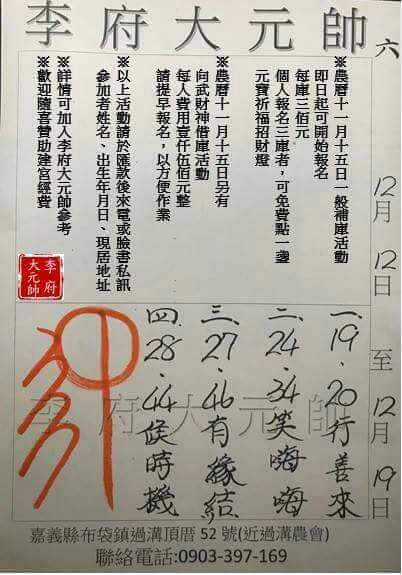 李府大元帥
六
※農曆十一月十五日一般補庫活動
即日起可開始報名
每庫三佰元
個人報名三庫者，可免費點一盞
元寶祈福招財燈
※農曆十一月十五日另有
向武財神借庫活動
每人費用壹仟伍佰元整
請提早報名，以方便作業
※以上活動請於匯款後來電或臉書私訊
參加者姓名、出生年月日、現居地址
※詳情可加入李府大元帥參考
※歡迎隨喜贊助建宮經費
李府
大元帥
12月12日至12月19日
一.19.20行善來
二.24.34笑嗨嗨
三.27.46有緣結
四.28.44候時機
李府大元帥
嘉義縣布袋鎮過溝頂厝 52 號(近過溝農會)
聯絡電話:0903-397-169